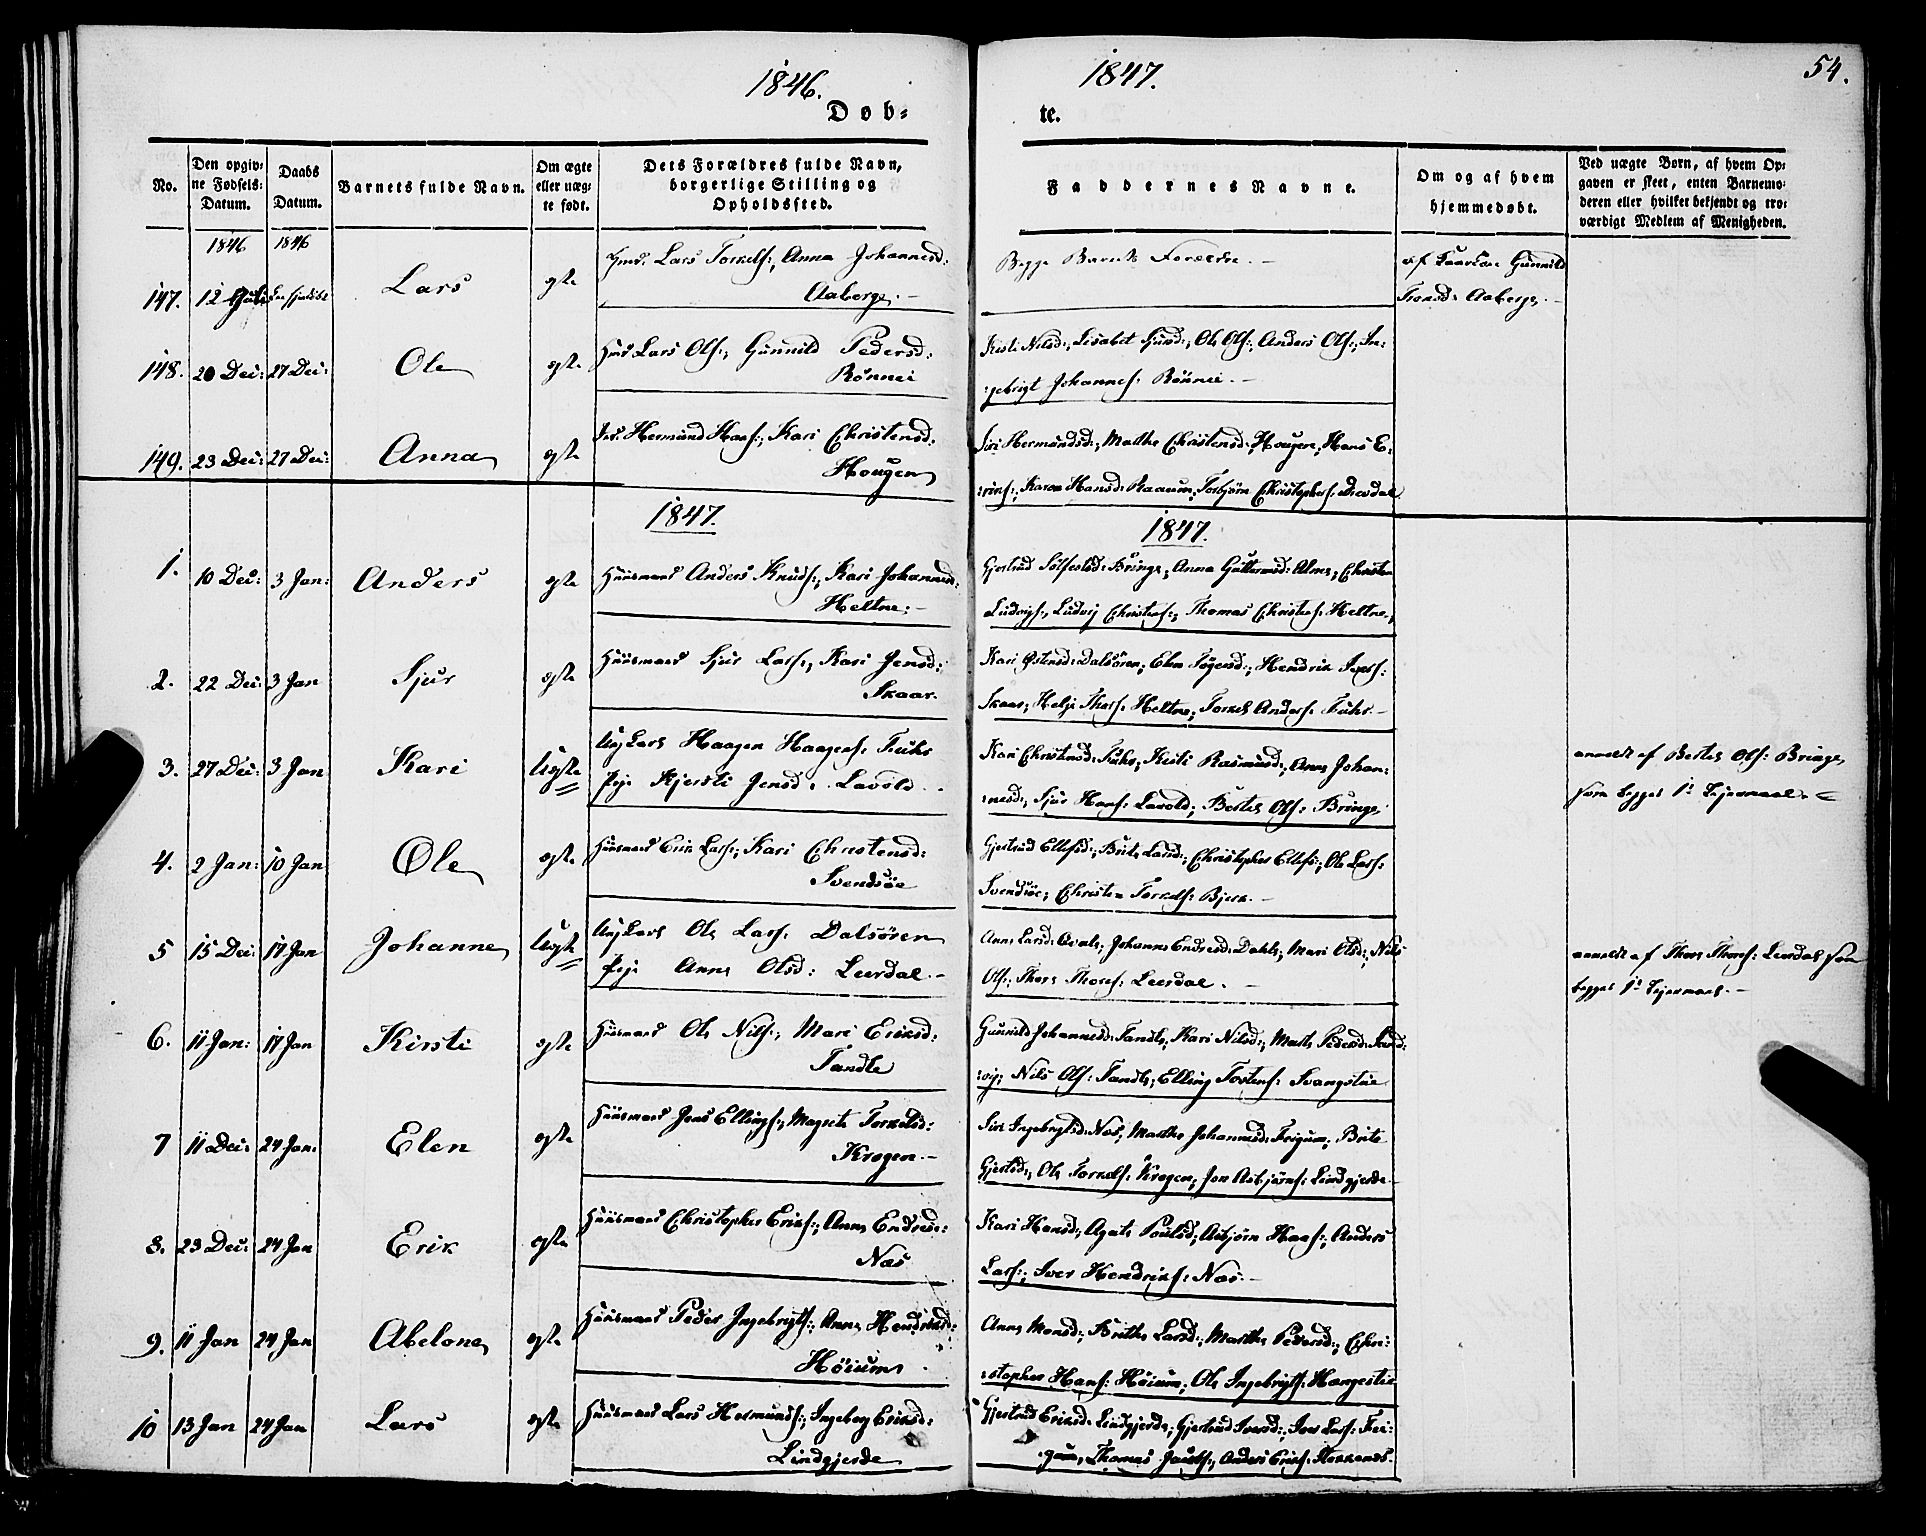 1846.
1847.
54.
Døb=
te.
No.
Den opgiv=
ne Fødsels=
Datum.
Daabs
Datum.
Barnets fulde Navn.
Om ægte
eller uæg=
te født.
Dets Forældres fulde Navn,
borgerlige Stilling og
Opholdssted.
Faddernes Navne.
Om og af hvem
hjemmedøbt.
Ved uægte Børn, af hvem Op=
gaven er skeet, enten Barnemo=
deren eller hvilket bekjendt og tro=
værdigt Medlem af Menigheden.
1846
1846
147. 12 Juli Lars ægte
Lars Torkels:, Anna Johannesd:
Aaberge.
Begge Barnets Forældre.
af Gunnild
Aaberge.
148. 20 Dec: 27 Dec: Ole ægte
Huusm Lars Ols:, Gunnild Pedersd:
Rønnei
Kirsti Nilsd:, Lisabet Sjursd:, Ole Ols:, Anders Ols:, In=
gebrigt Johannes: Rønnei.
149. 23 Dec: 27 Dec: Anna ægte
Hermund Hans:, Kari Christensd:
Hougen
Siri Hermundsd:, Marthe Christensd: Hougen, Hans E=
riks:, Karen Hansd: Raaum, Torbjørn Christophers:
1847.
1847.
1. 10 Dec: 3 Jan: Anders ægte
Huusmand Anders Knuds:, Kari Johannesd:
Heltne.
Gjertrud Bringe, Anna Guttormsd: Alme, Christen
Ludvigs:, Ludvig Christens:, Thomas Christens: Heltne,
2. 22 Dec: 3 Jan Sjur ægte
Huusmand Sjur Lars:, Kari Jensd:
Skaar.
Kari Østensd: Dalsøren, Elen, Hendrik
Skaar, Helje Thors: Heltne, Torkel Anders: Fuhr.
3. 27 Dec: 3 Jan Kari Uægte
Ungkarl Haagen Haagens: Fuhr
Pige Kjersti Jensd: Lavold
Kari Christensd: Fuhr, Kirsti Rasmusd:, Anna Johan=
nesd:, Sjur Hans: Lavold, Bertel Ols: Bringe
anmeldt af Bertel Ols: Bringe,
som begges 1te Leiermaal.
4. 2 Jan: 10 Jan Ole ægte
Huusmand Erik Lars:, Kari Christensd:
Svendsøe
Gjertrud Ellefsd:, Brite Larsd:, Christopher Ellefs:, Ole Lars:
Svendsøe, Christen Torkels: Bjerk.
5 15 Dec: 17 Jan Johanne Uægte
Ungkarl Ole Lars: Dalsøren
Pige Anna Olsd: Leerdal.
Anna Larsd: Qvale, Johanne Endresd: Dahle, Mari Olsd:, Nils
Ols:, Thore Thores: Leerdal.
anmeldt af Thore Thores: Leerdal som
begges 1te Leiermaal.
6. 11 Jan: 17 Jan Kirsti ægte
Huusmand Ole Nils:, Mari Eriksd:
Tandle
Gunnild Johannesd: Tandle, Kari Nilsd:, Marthe Pedersd: Sand=
vig, Nils Ols: Tandle, Elling Tostens: Svangstue
7 11 Dec: 24 Jan: Elen ægte
Huusmand Jens Ellings:, Magrete Torkelsd:
Krogen.
Siri Ingebrigtsd: Næs, Marthe Johannesd: Feigum, Brite
Gjertsd:, Ole Torkels: Krogen, Jon Asbjørns: Lindgjerde
8. 23 Dec: 24 Jan Erik ægte
Huusmand Christopher Eriks:, Anna Endresd:
Næs
Kari Hansd:, Agate Poulsd:, Asbjørn Hans:, Anders
Lars:, Iver Hendriks: Næs.
9. 11 Jan 24 Jan Abelone ægte
Huusmand Peder Ingebrigts:, Anna Hendriksd:
Høium
Anna Monsd:, Brithe Larsd:, Marthe Pedersd:, Chri=
stopher Hans: Høium, Ole Ingebrigts: Haugestue
10 13 Jan 24 Jan Lars ægte
Huusmand Lars Hermunds:, Ingeborg Eriksd:
Lindgjerde
Gjertrud Eriksd: Lindgjerde, Gjertrud Iversd:, Iver Lars: Fei=
gum, Thomas, Anders Eriks: